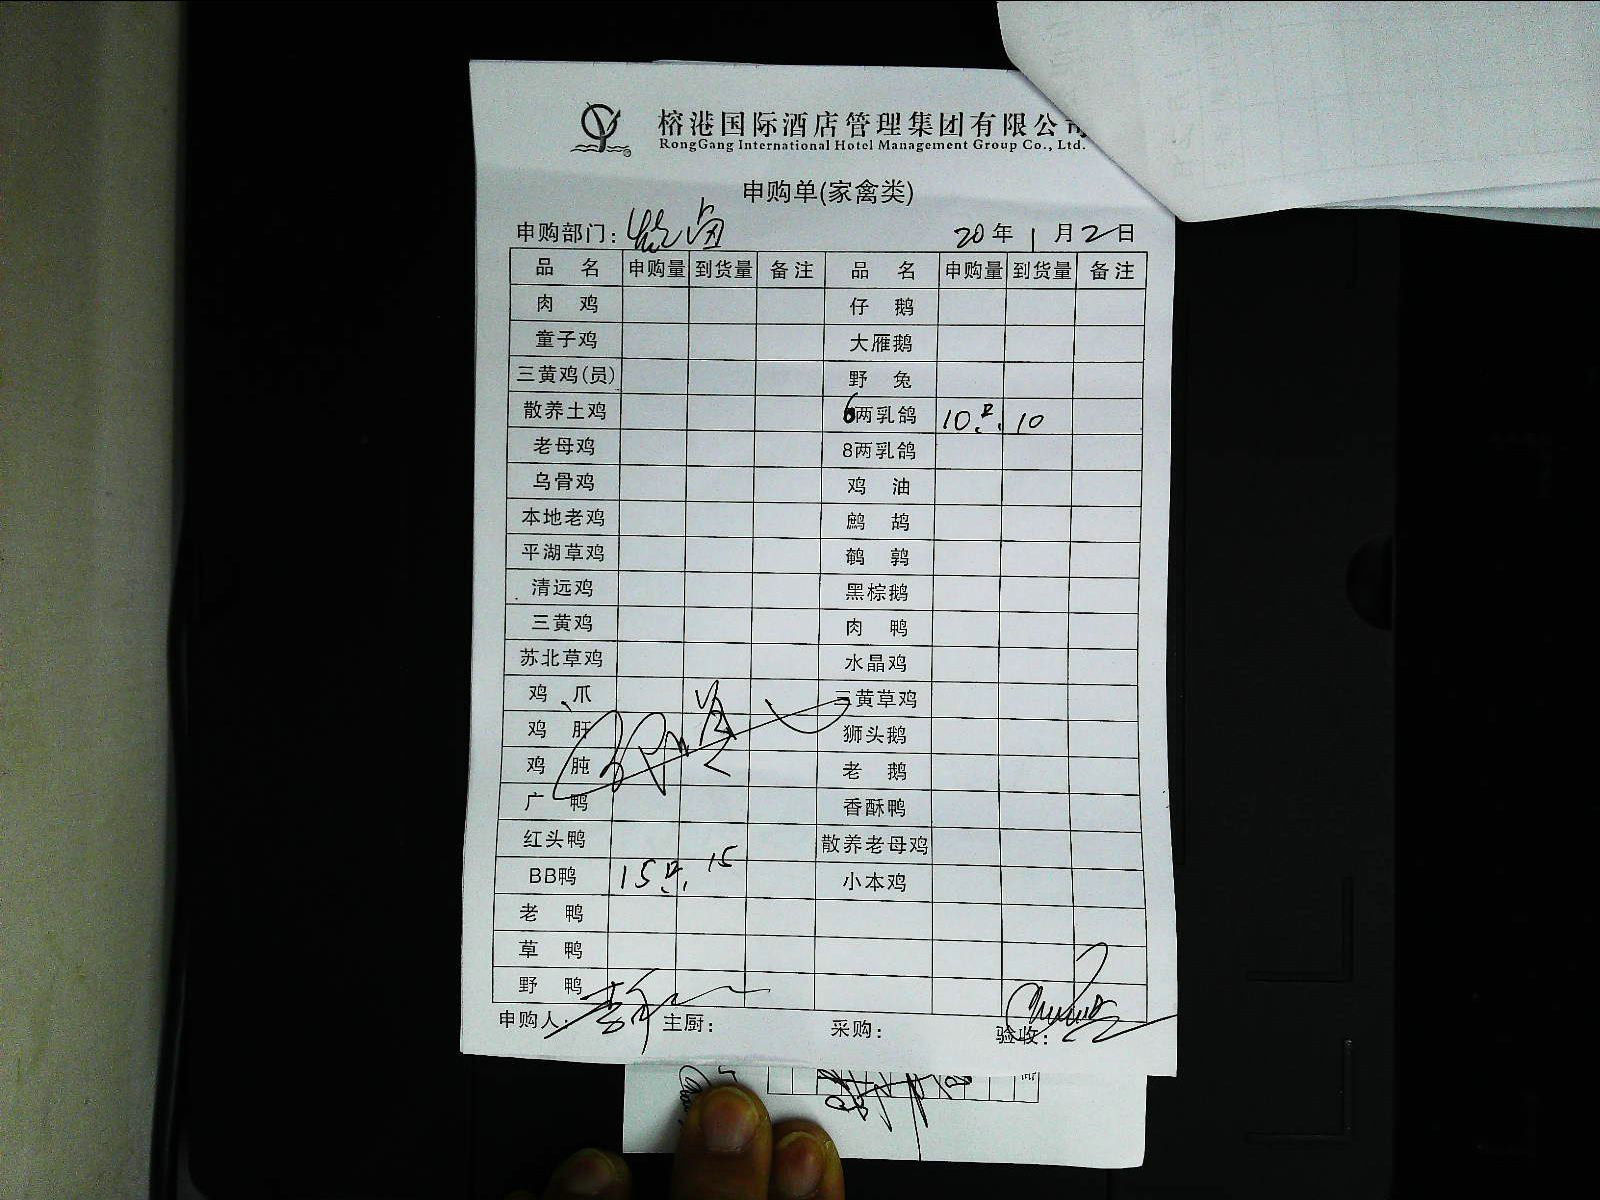 榕港国际酒店管理集团有限公司
RongGang International Hotel Management Group Co., Ltd.
申购单(家禽类)
申购部门: 20年1月2日
品名 申购量 到货量 备注 品名 申购量 到货量 备注
肉鸡 仔鹅
童子鸡 大雁鹅
三黄鸡(员) 野兔
散养土鸡 6两乳鸽 10 10
老母鸡 8两乳鸽
乌骨鸡 鸡油
本地老鸡 鹧鸪
平湖草鸡 鹌鹑
清远鸡 黑棕鹅
三黄鸡 肉鸭
苏北草鸡 水晶鸡
鸡爪 三黄草鸡
鸡肝 狮头鹅
鸡肫 老鹅
广鸭 香酥鸭
红头鸭 散养老母鸡
BB鸭 15 15 小本鸡
老鸭
草鸭
野鸭
申购人: 主厨: 采购: 验收: